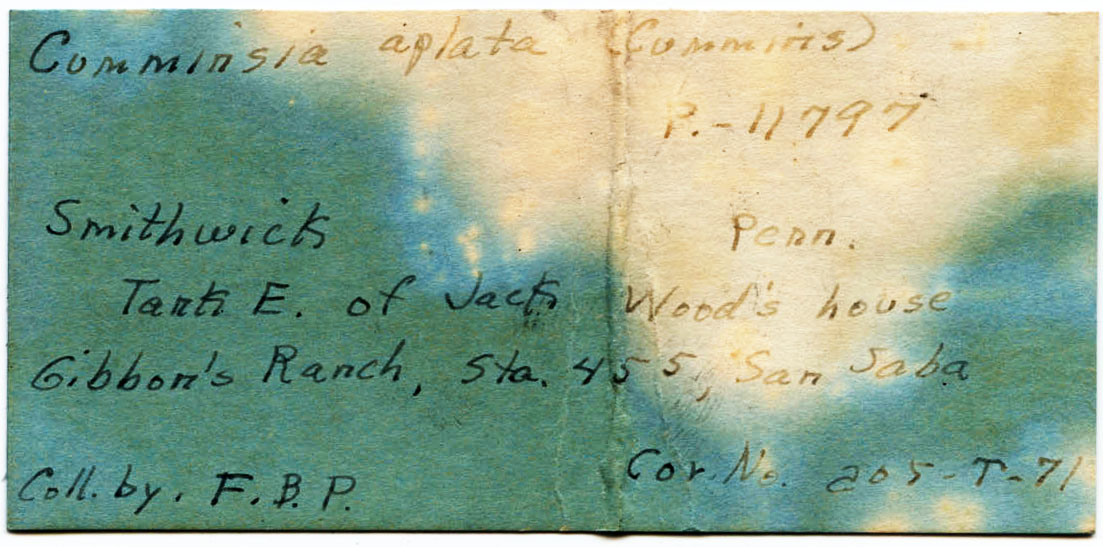 Cumminsia aplata (Cummins)
P.-11797
Smithwick Penn.
Tank E. of Jack Wood's house
Gibbon's Ranch, Sta. 455, San Saba
Coll. by. F.B.P. Cor. No. 205-T-71